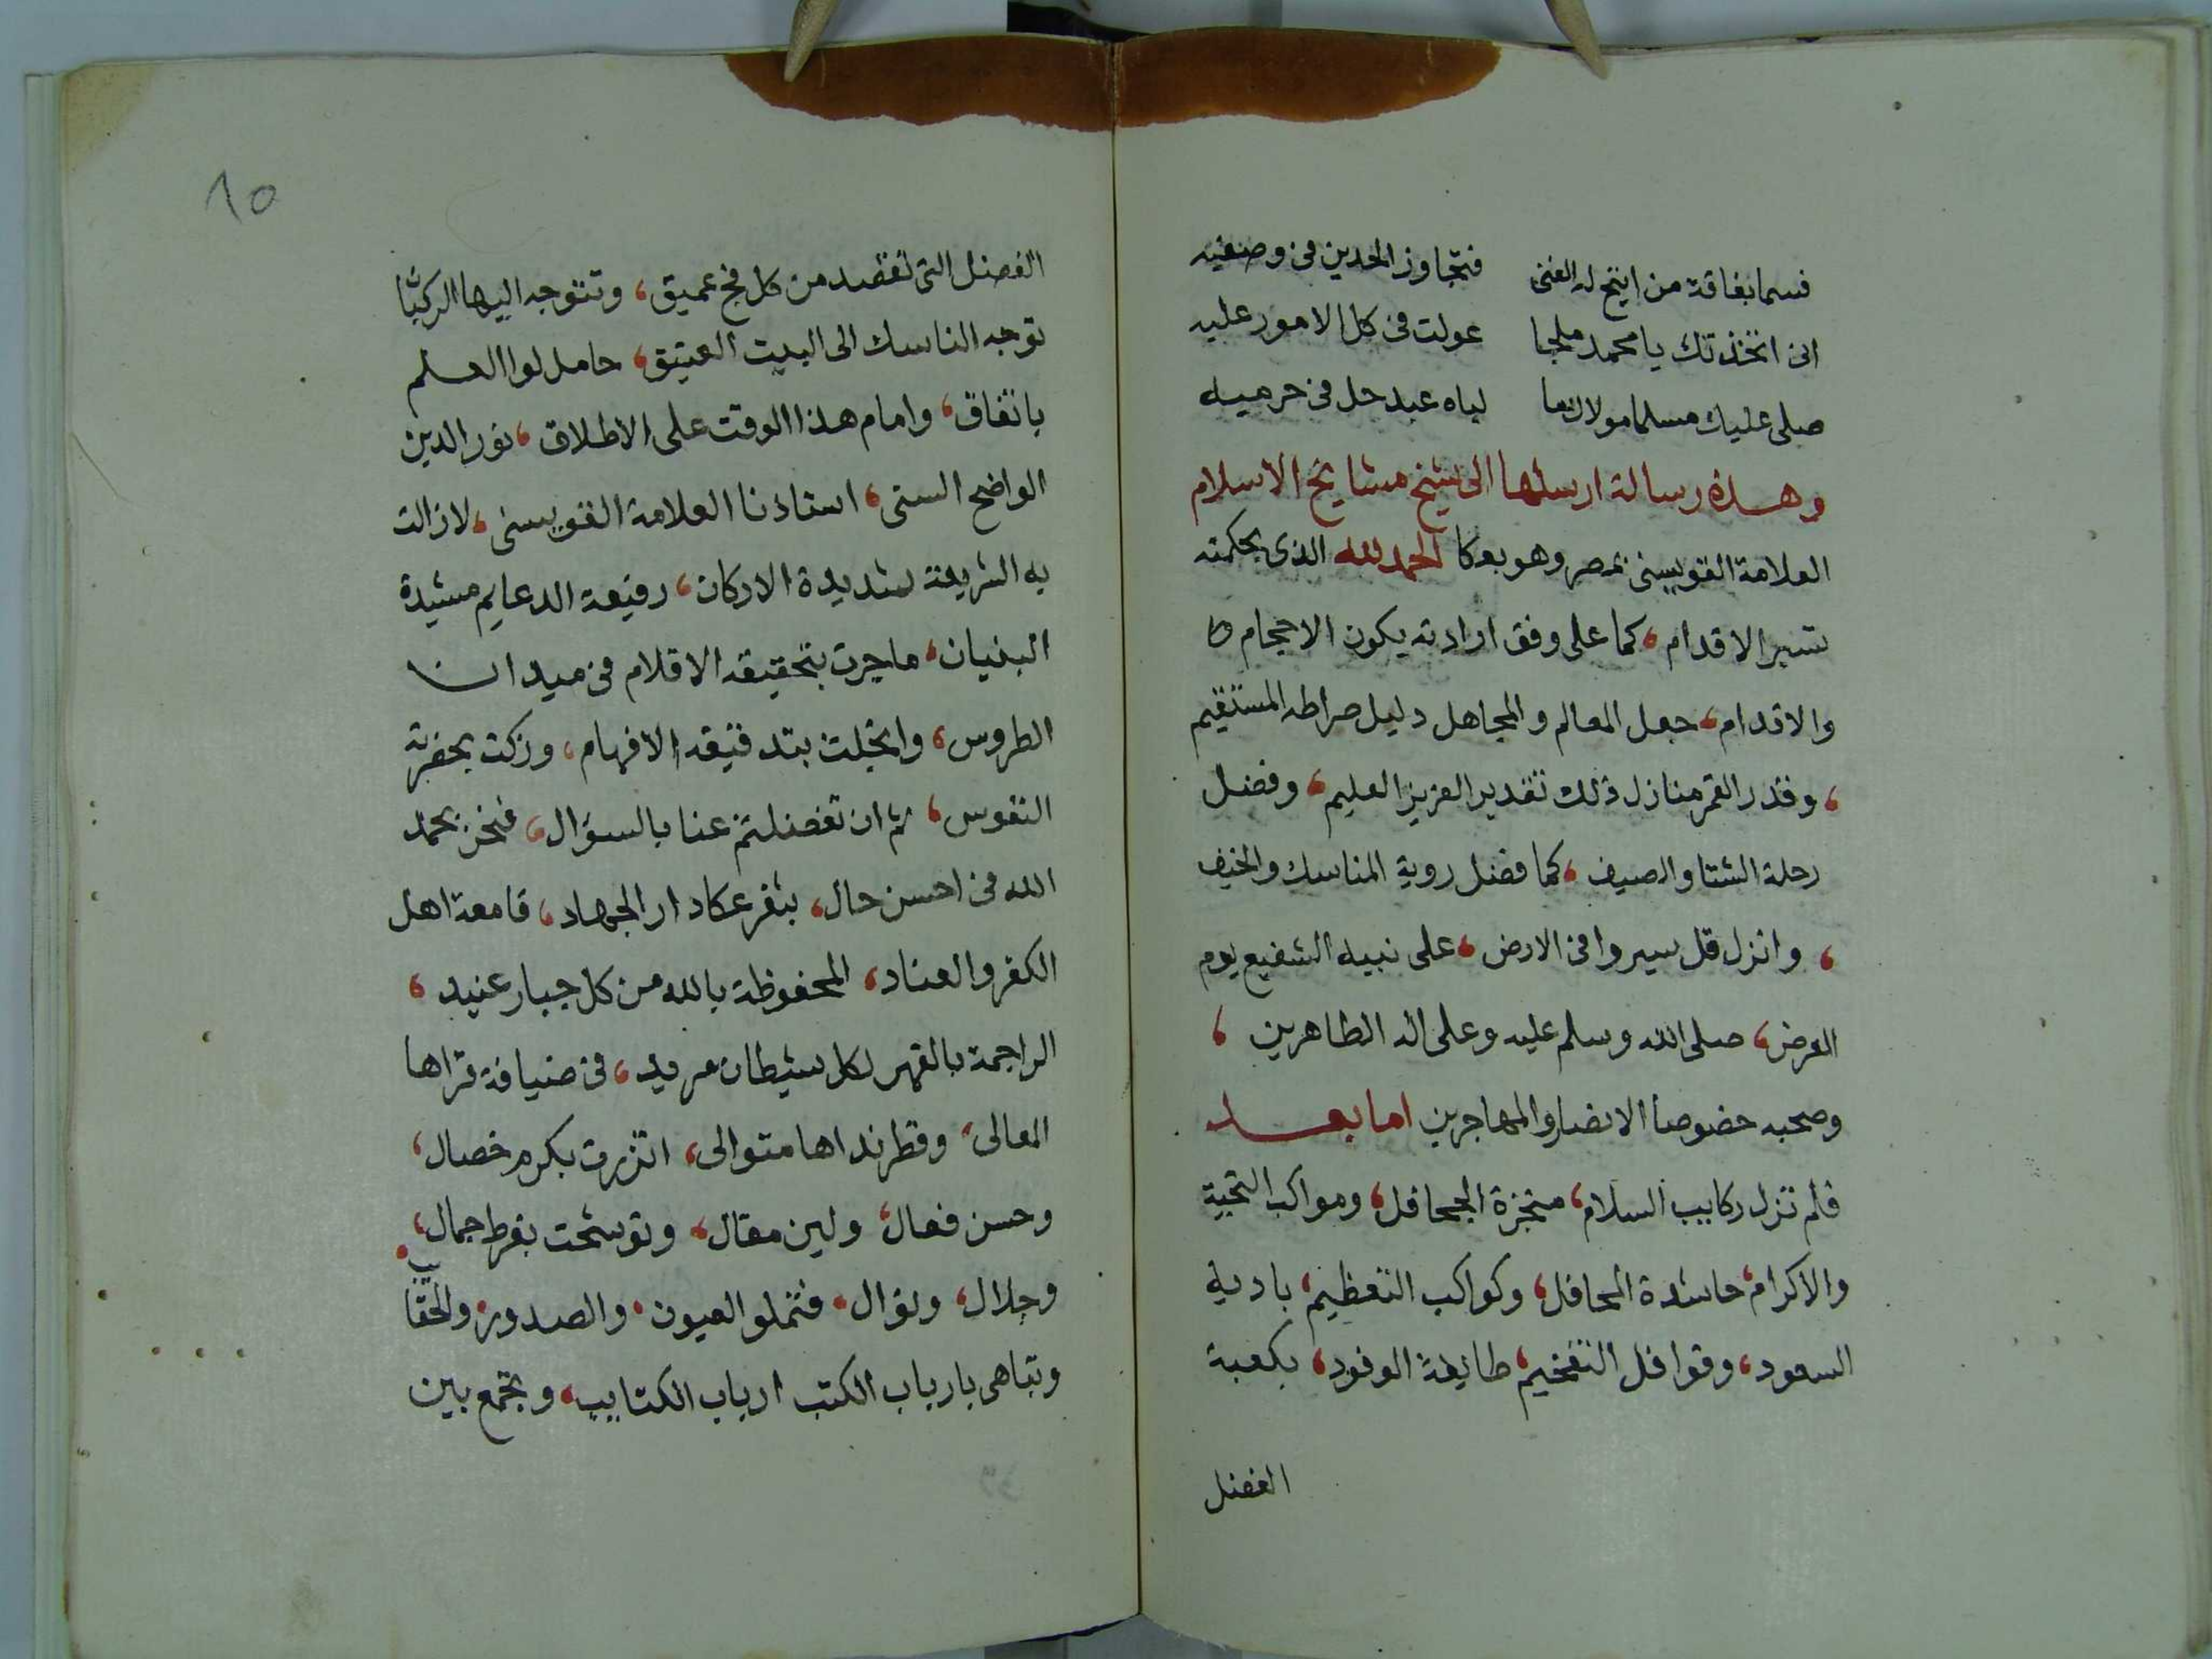 فسما بفاقة من اتيح له الغنى فتجاوز الحدين في وصفيه
انى اتخذتك يا محمد ملجا عولت في كل الامور عليه
صلى عليك مسلما مولاك ما لباه عبد حل في حرميه
وهذه رسالة ارسلها الى شيخ مشايخ الاسلام
العلامة القويسنى بمصر وهو بعكا الحمد لله الذى بحكمته
تسير الاقدام، كما على وفق ارادته يكون الاحجام
والاقدام، جعل المعالم والمجاهل دليل صراطه المستقيم
، وقدر القمر منازل ذلك تقدير العزيز العليم، وفضل
رحلة الشتا والصيف، كما فضل روية المناسك والخيف
، وانزل قل سيروا فى الارض، على نبيه الشفيع يوم
العرض، صلى الله وسلم عليه وعلى اله الطاهرين،
وصحبه خصوصا الانصار والمهاجرين اما بعد
فلم تزل ركايب السلام، منجزة الجحافل، ومواكب التحية
والاكرام، حاشدة المحافل، وكواكب التعظيم، بادية
السعود، وقوافل التفخيم، طايفة الوفود، بكعبة
الفضل
١٥
الفضل التى تقصد من كل فج عميق، وتتوجه اليها الركبان
توجه الناسك الى البيت العتيق، حامل لوا العلم
باتفاق، وامام هذا الوقت على الاطلاق، نور الدين
الواضح السنى، استاذنا العلامة القويسنى، لازالت
به الشريعة شديدة الاركان، رفيعة الدعايم مشيدة
البنيان، ما جرت بتحقيقه الاقلام فى ميدان
الطروس، وانجلت بتدقيقه الافهام، وزكت بحضرته
النفوس، ثم ان تفضلتم عنا بالسؤال، فنحن بحمد
الله فى احسن حال، بثغر عكا دار الجهاد، قامعة اهل
الكفر والعناد، المحفوظة بالله من كل جبار عنيد،
الراجمة بالقهر لكل شيطان مريد، فى ضيافة قراها
المعالى، وقطر نداها متوالى، اتزرت بكرم خصال،
وحسن فعال، ولين مقال، وتوشحت بفرط جمال،
وجلال، ونوال، فتملو العيون، والصدور، والحقايب
وتباهى بارباب الكتب ارباب الكتايب، وتجمع بين